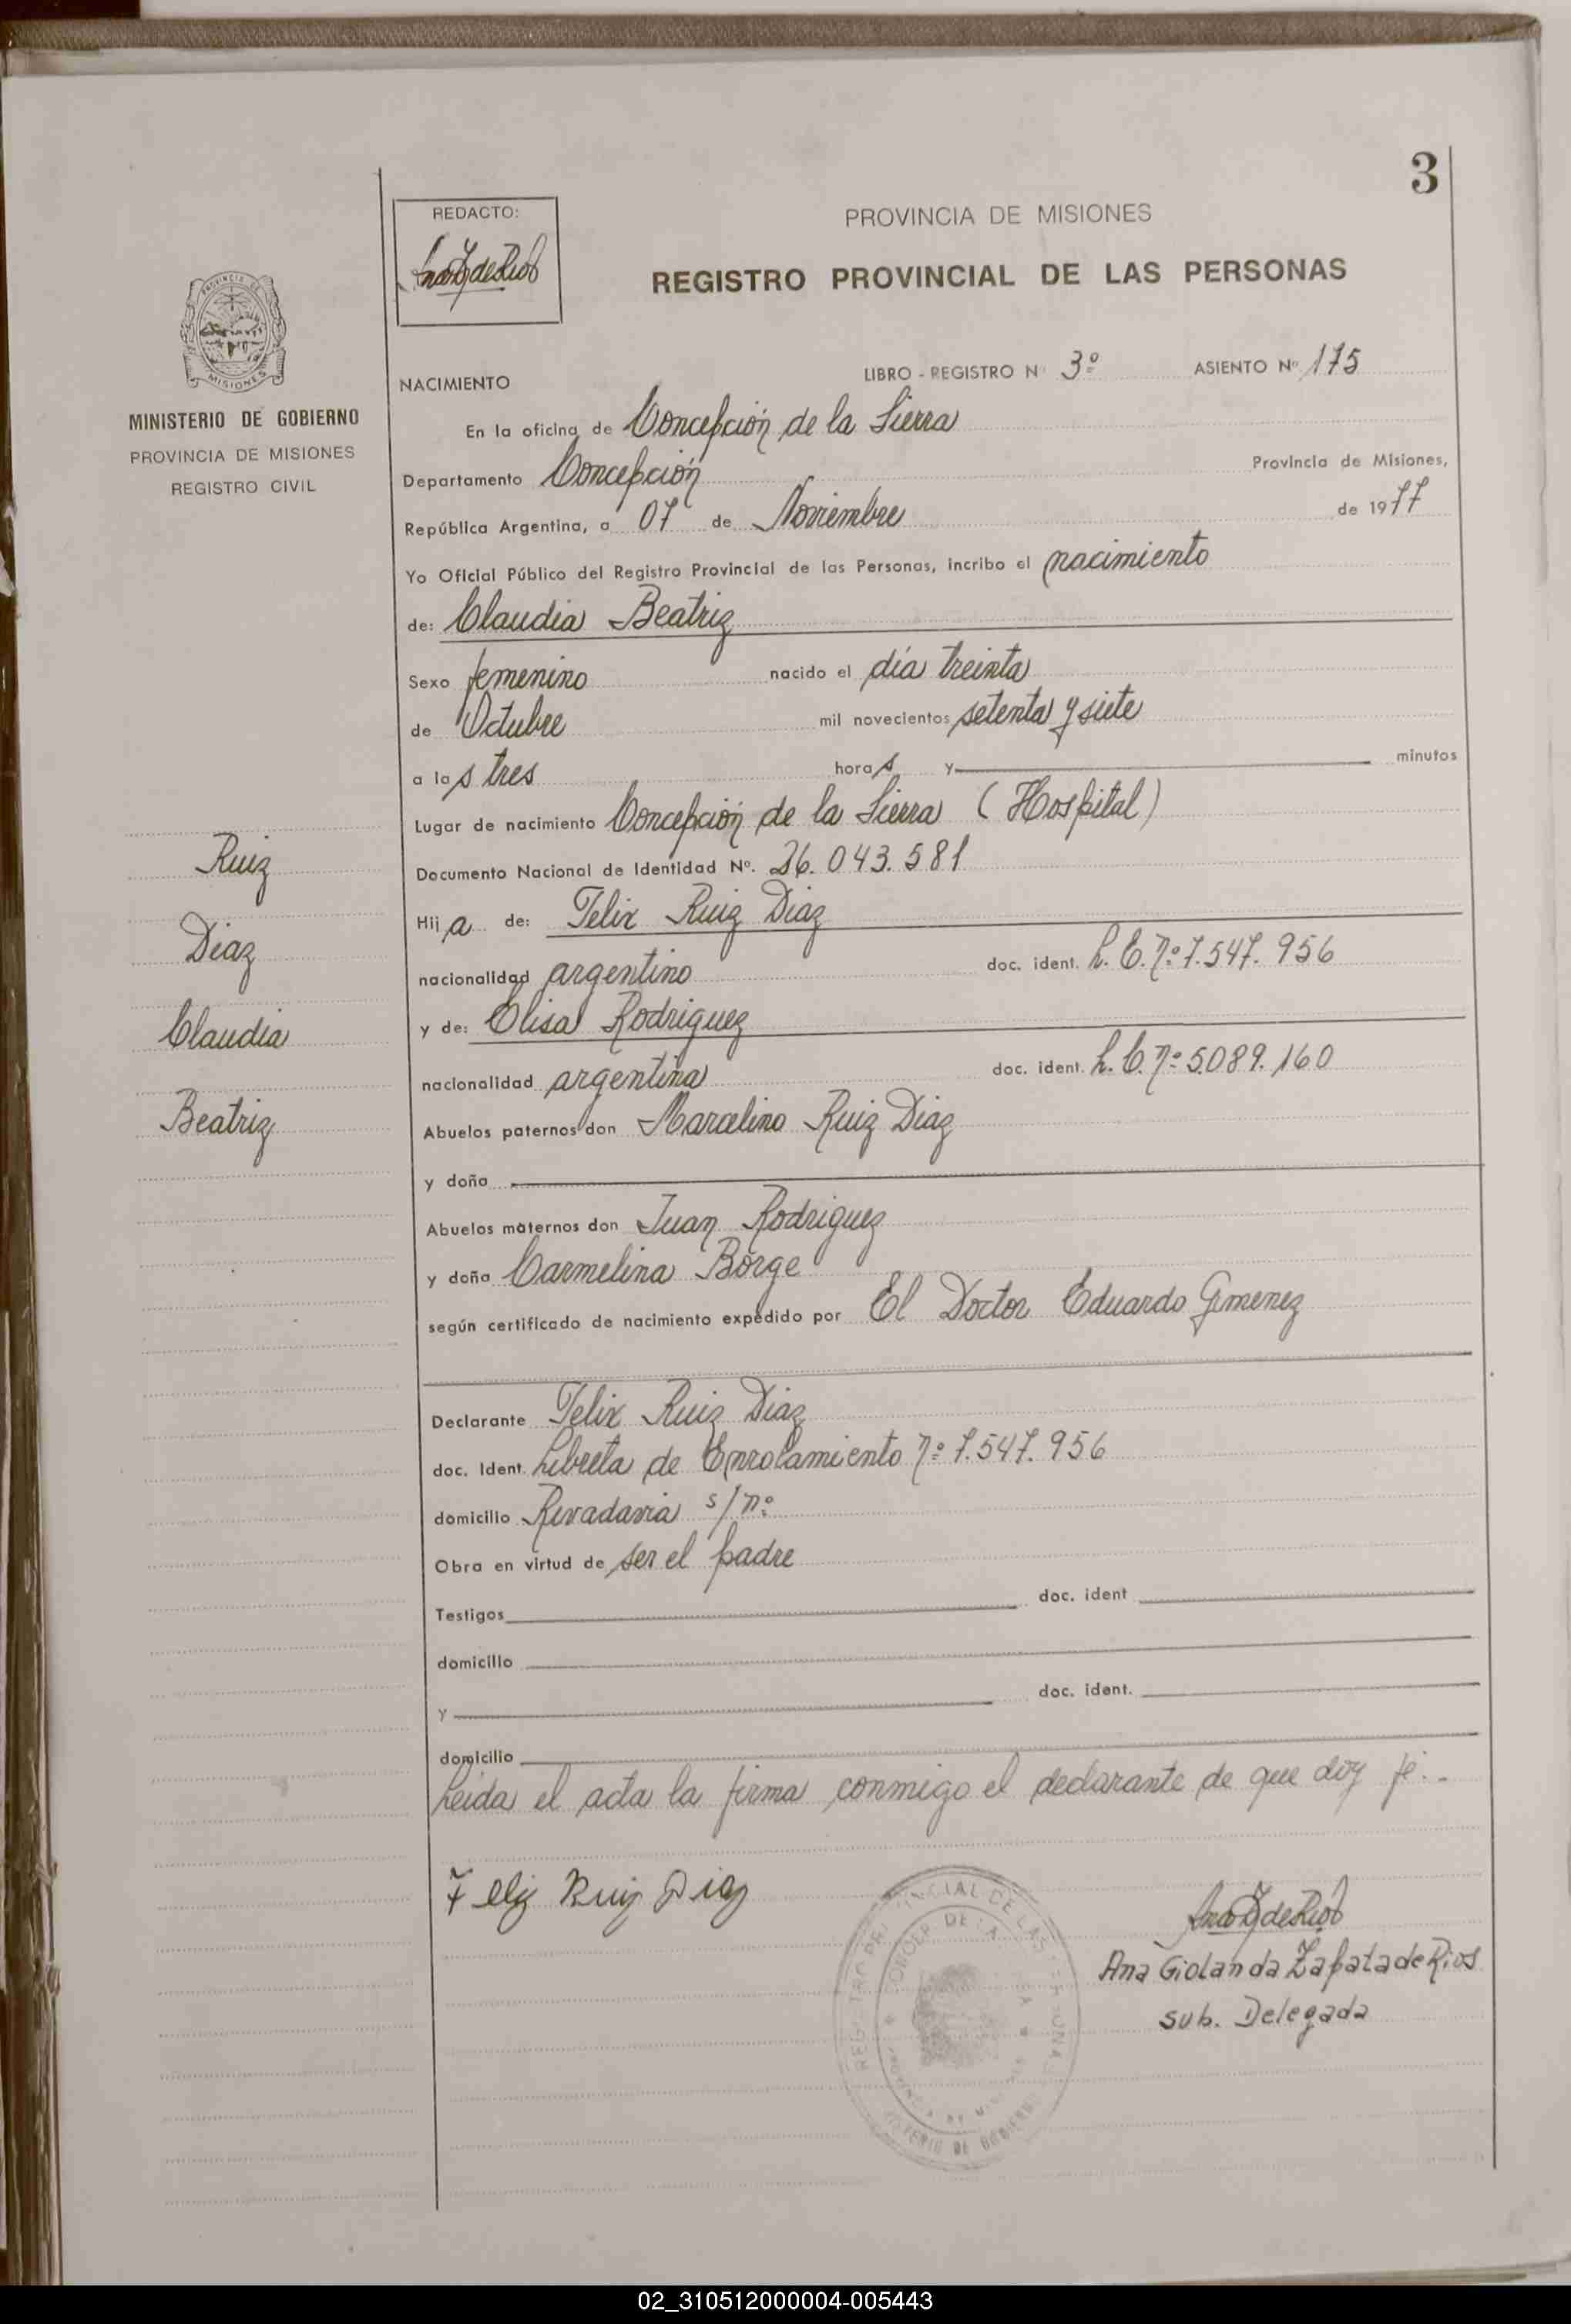 3
REDACTO:
PROVINCIA DE MISIONES
REGISTRO PROVINCIAL DE LAS PERSONAS
MISIONES
MINISTERIO DE GOBIERNO
PROVINCIA DE MISIONES
REGISTRO CIVIL
NACIMIENTO LIBRO - REGISTRO N° 3º ASIENTO Nº 175
En la oficina de Concepción de la Sierra
Departamento Concepción Provincia de Misiones,
República Argentina, a 07 de Noviembre de 1977
Yo Oficial Público del Registro Provincial de las Personas, incribo el nacimiento
de: Claudia Beatriz
Sexo femenino nacido el día treinta
de Octubre mil novecientos setenta y siete
a las tres horas y minutos
Lugar de nacimiento Concepción de la Sierra (Hospital)
Documento Nacional de Identidad Nº. 26.043.581
Hija de: Felix Ruiz Diaz
nacionalidad argentino doc. ident. L.E. nº 7.547.956
y de: Elisa Rodriguez
nacionalidad argentina doc. ident. L.C. nº 5.089.160
Abuelos paternos don Marcelino Ruiz Diaz
y doña
Abuelos maternos don Juan Rodriguez
y doña Carmelina Borge
según certificado de nacimiento expedido por El Doctor Eduardo Gimenez
Declarante Felix Ruiz Diaz
doc. Ident. Libreta de Enrolamiento nº 7.547.956
domicilio Rivadavia s/nº
Obra en virtud de ser el padre
Testigos doc. ident
domicilio
y doc. ident.
domicilio
Leida el acta la firma conmigo el declarante de que doy fé.-
Ruiz
Diaz
Claudia
Beatriz
Felix Ruiz Diaz
Ana Giolanda Zapata de Rios
sub. Delegada
02_310512000004-005443